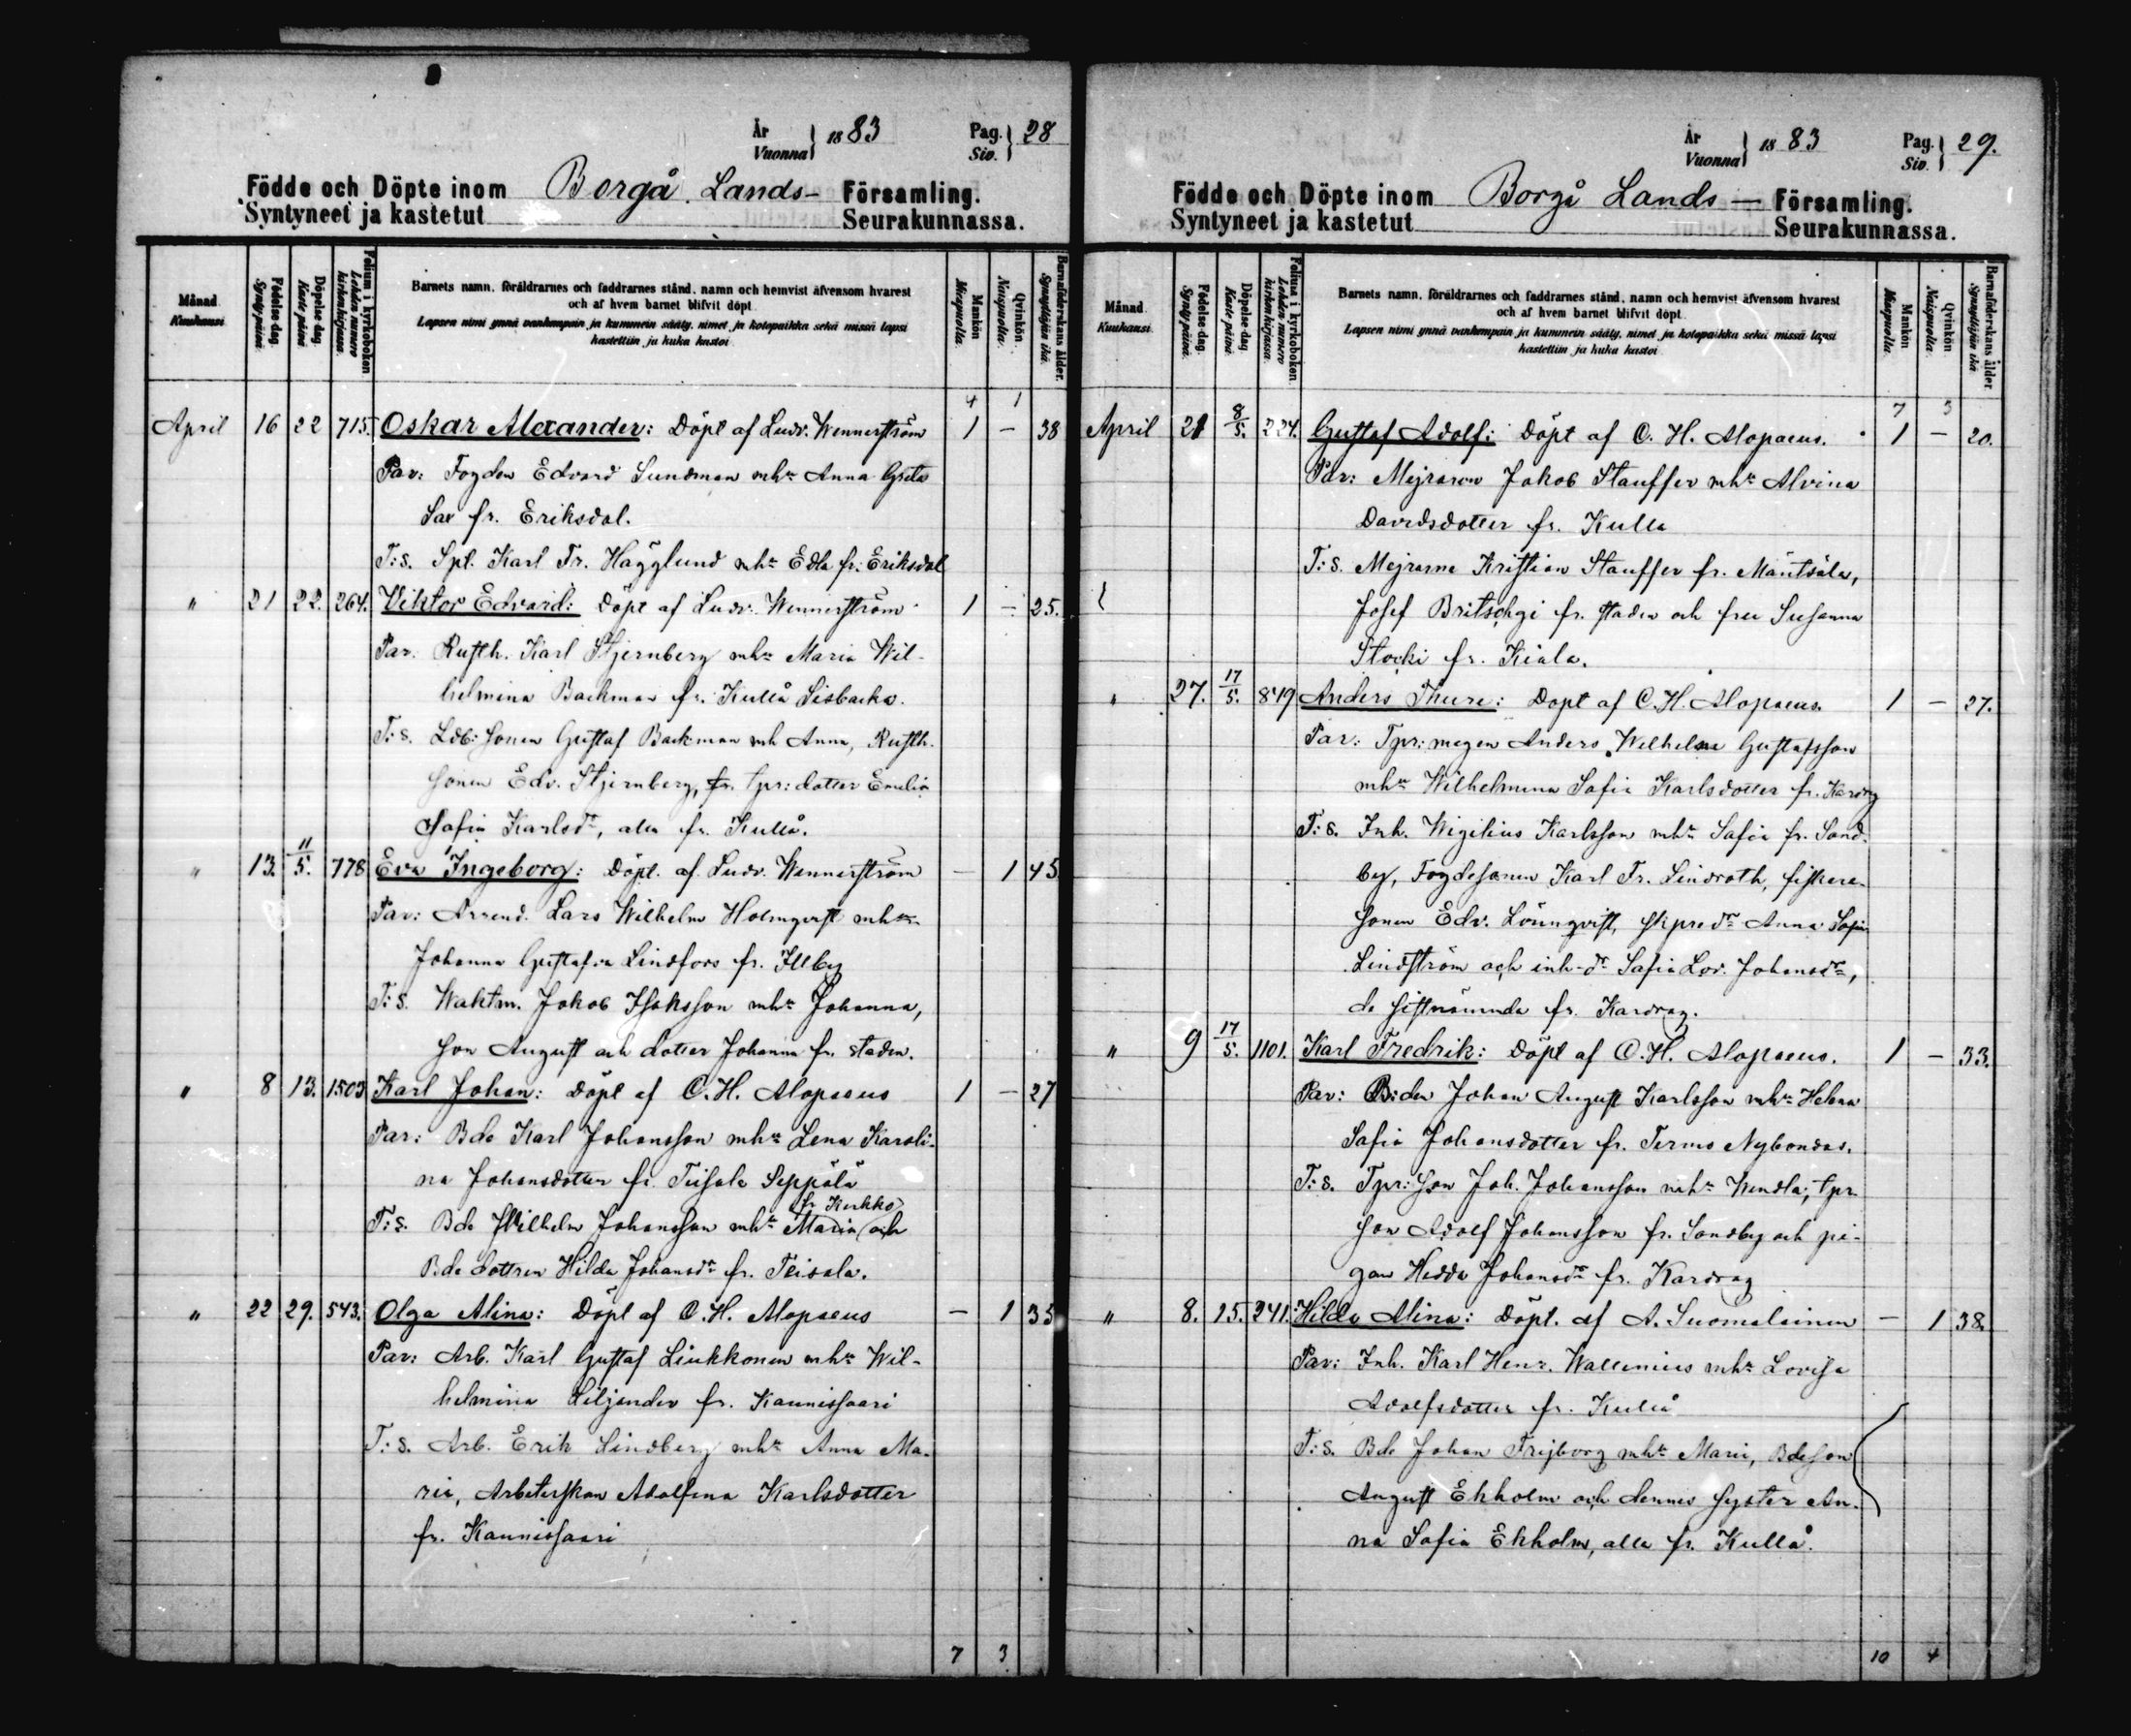 År
Vuonna } 1883 Pag.
Siv. } 28
Födde och Döpte inom Borgå Lands- Församling.
Syntyneet ja kastetut Seurakunnassa.
Månad Kuukausi
Födelse-dag. Syntypäivä.
Döpelse dag. Kaste päivä
Folium i kyrkoboken Lehden numero kirkonkirjassa.
Barnets namn, föräldrarnes och faddrarnes stånd, namn och hemvist äfvensom hvarest
och af hvem barnet blifvit döpt.
Lapsen nimi ynnä vanhempain ja kummein sääty, nimet ja kotopaikka sekä missä lapsi
kastettiin ja kuka kastoi
Mankön Miespuolta.
Qvinkön Naispuolta.
Barnaföderskans ålder. Synnyttäjän ikä.
4 1
April 16 22 715. Oskar Alexander: Döpt af Ludv. Wennerström 1 – 38
Par: Fogden Edvard Sundman mhu Anna Greta
Sax fr. Eriksdal.
T:s. Spl. Karl Fr. Hägglund mhu Edla fr. Eriksdal
" 21 22. 264. Viktor Edvard: Döpt af Ludv. Wennerström 1 – 25.
Par. Rusth. Karl Stjernberg mhu Maria Wil-
helmina Backman fr. Kullå Sisbacka.
T:s. Ldb: sonen Gustaf Backman mh Anna, Rusth.
sonen Edv. Stjernberg, fr. tpr: dotter Emelia
Sofia Karlsdr, alla fr. Kullå.
" 13. 11/5. 778 Eva Ingeborg: Döpt. af Ludv. Wennerström – 1 45
Par: Arrend. Lars Wilhelm Holmqvist mhu
Johanna Gustafva Lindfors fr. Illby
T:s. Waktm. Jakob Isaksson mhu Johanna,
son August och dotter Johanna fr. staden.
" 8 13. 1503 Karl Johan: Döpt af C. H. Alopaeus 1 – 27
Par: Bde Karl Johansson mhu Lena Karoli-
na Johansdotter fr. Teisala Seppälä
fr Kerkko
T:s. Bde Wilhelm Johansson mhu Maria och
Bde dottren Hilda Johansdr fr. Teisala.
" 22 29. 543. Olga Alina: Döpt af C. H. Alopaeus – 1 35
Par: Arb. Karl Gustaf Liukkonen mhu Wil-
helmina Liljander fr. Kaunissaari
T:s. Arb. Erik Lindberg mhu Anna Ma-
ria, Arbeterskan Adolfina Karlsdotter
fr. Kaunissaari
7 3
År
Vuonna } 1883 Pag.
Siv. } 29.
Födde och Döpte inom Borgå Lands – Församling.
Syntyneet ja kastetut Seurakunnassa.
Månad Kuukausi.
Födelse-dag. Syntypäivä.
Döpelse-dag. Kaste päivä.
Folium i kyrkoboken. Lehden numero kirkonkirjassa.
Barnets namn, föräldrarnes och faddrarnes stånd, namn och hemvist äfvensom hvarest
och af hvem barnet blifvit döpt.
Lapsen nimi ynnä vanhempain ja kummein sääty, nimet ja kotopaikka sekä missä lapsi
kastettiin ja kuka kastoi
Mankön Miespuolta.
Qvinkön Naispuolta.
Barnaföderskans ålder. Synnyttäjän ikä.
7 3
April 21 8/5. 224. Gustaf Adolf: Döpt af C. H. Alopaeus. 1 – 20.
Par: Mejraren Jakob Stauffer mhu Alvina
Davidsdotter fr. Kulla
T:s. Mejrarne Kristian Stauffer fr. Mäntsälä,
Josef Britschgi fr. staden och fru Susanna
Stocki fr. Kiala.
" 27. 17/5. 849 Anders Thure: Döpt af C. H. Alopaeus. 1 – 27.
Par: Tpr: mågen Anders Wilhelm Gustafsson
mhu Wilhelmina Sofia Karlsdotter fr. Kardrag
T:s. Inh. Wigilius Karlsson mhu Sofia fr. Sand-
by, Fogdesonen Karl Fr. Lindroth, fiskare-
sonen Edv. Lönnqvist, skpredr Anna Sofia
Lindström och inh-dr Sofia Lov. Johansdr,
de sistnämnda fr. Kardrag.
" 9 17/5. 1101. Karl Fredrik: Döpt af C. H. Alopaeus. 1 – 33.
Par: B:den Johan August Karlsson mhu Helena
Sofia Johansdotter fr. Terms Nybondas.
T:s. Tpr: son Joh. Johansson mhu Wendla, tpr.
son Adolf Johansson fr. Sandby och pi-
gan Hedda Johansdr fr. Kardrag
" 8. 15. 241. Hilda Alina: Döpt. af A. Suomalainen – 1 38.
Par: Inh. Karl Henr. Wallenius mhu Lovisa
Adolfsdotter fr. Kullå
T:s. Bde Johan Frejborg mhu Maria, Bdeson
August Ekholm och dennes syster An-
na Sofia Ekholm, alla fr. Kullå.
10 4